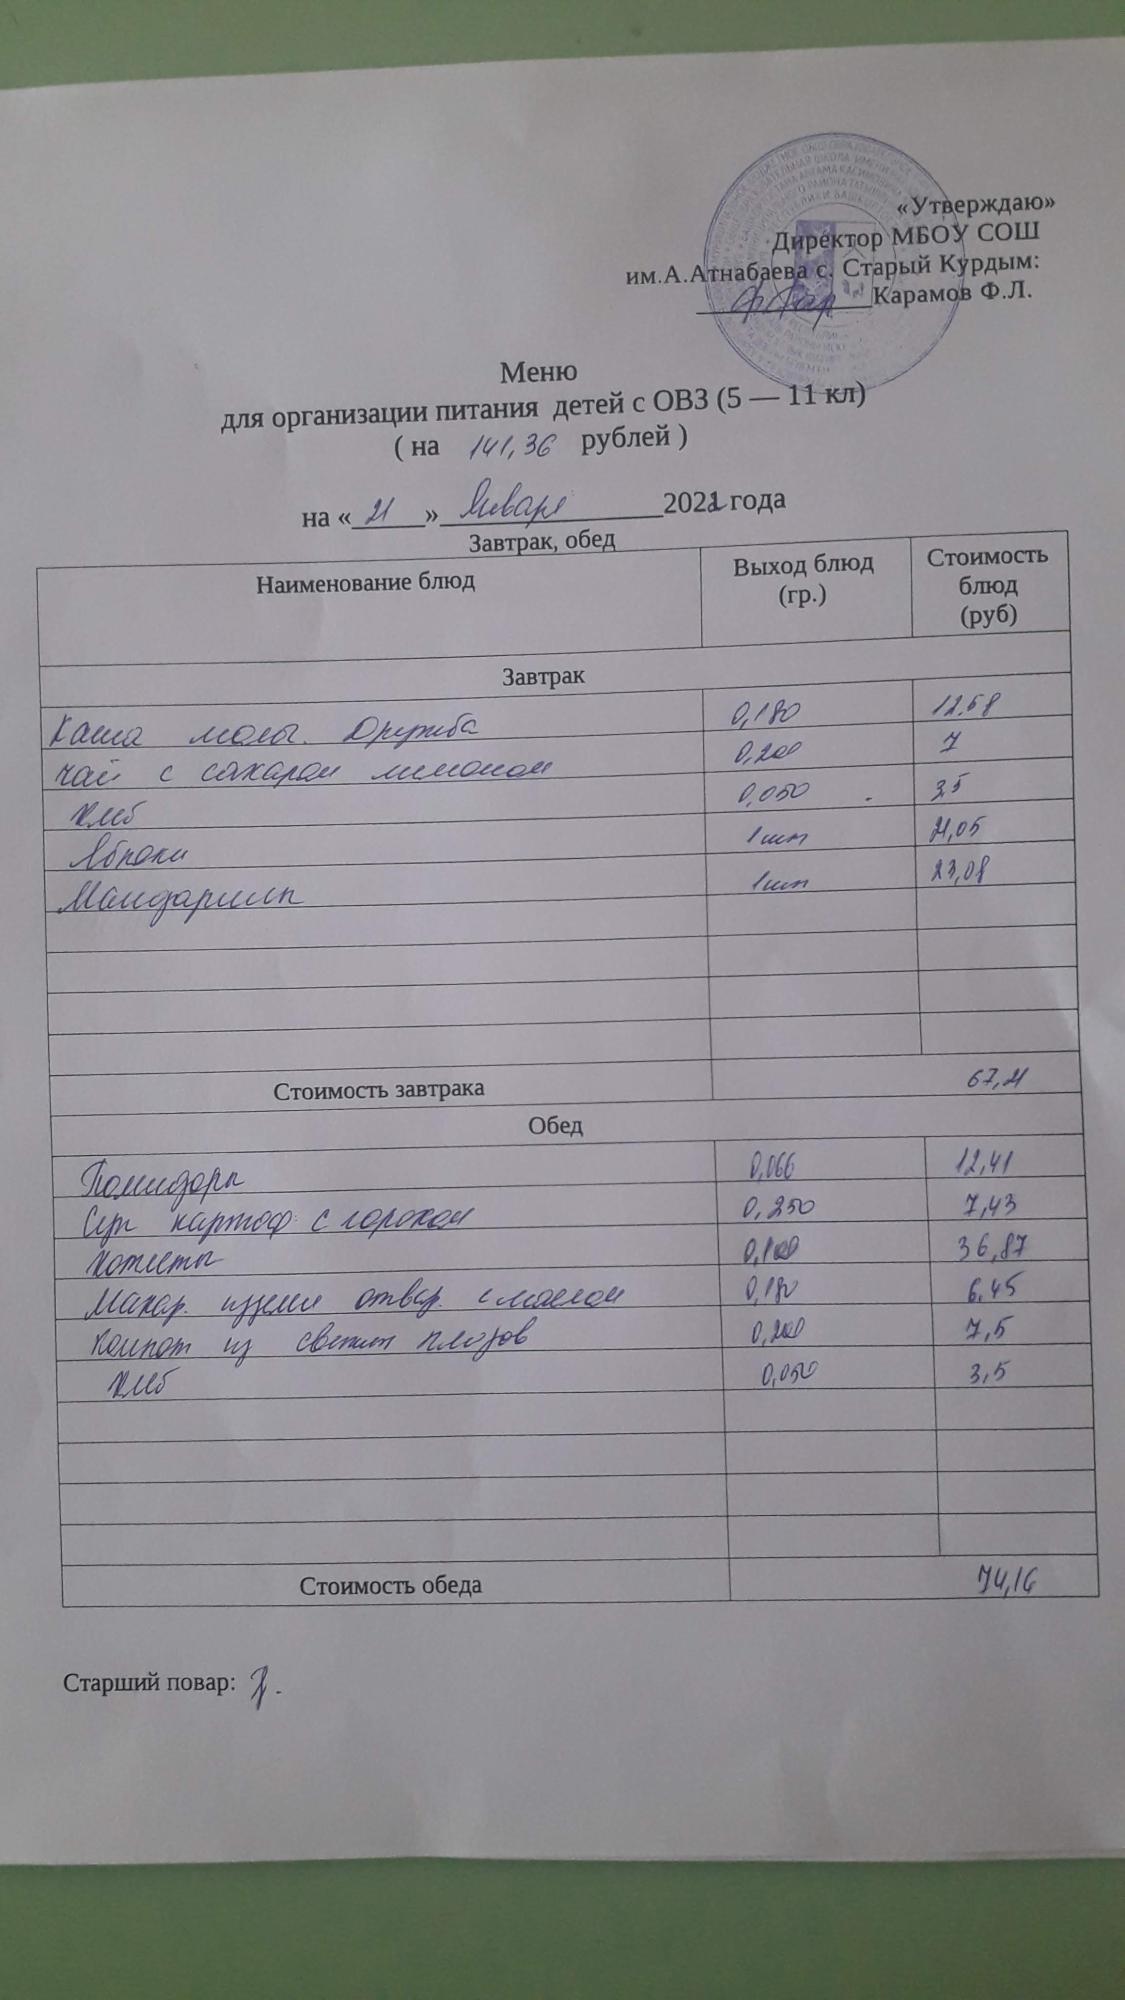 «Утверждаю»
Директор МБОУ СОШ
им.А.Атнабаева с. Старый Курдым:
Карамов Ф.Л.
Меню
для организации питания детей с ОВЗ (5 — 11 кл)
( на 141,36 рублей )
на « 21 » Января 2022 года
Завтрак, обед
Наименование блюд Выход блюд (гр.) Стоимость блюд (руб)
Завтрак
Каша молоч. Дружба 0,180 12.58
Чай с сахаром лимоном 0,200 7
Хлеб 0,050 3,5
Яблоки 1шт 21,05
Мандарины 1шт 23,08
Стоимость завтрака 67,21
Обед
Помидоры 0,066 12,41
Суп картоф с горохом 0,250 7,43
Котлеты 0,100 36,87
Макар. изделия отвар. с маслом 0,180 6,45
Компот из свежих плодов 0,200 7,5
Хлеб 0,050 3,5
Стоимость обеда 74,16
Старший повар: